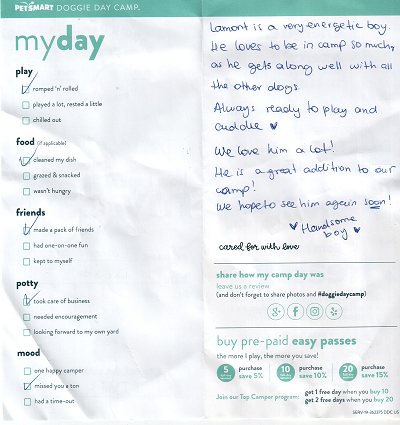 PETSMART DOGGIE DAY CAMP.
myday
play
romped 'n' rolled
played a lot, rested a little
chilled out
food (if applicable)
cleaned my dish
grazed & snacked
wasn't hungry
friends
made a pack of friends
had one-on-one fun
kept to myself
potty
took care of business
needed encouragement
looking forward to my own yard
mood
one happy camper
missed you a ton
had a time-out
Lamont is a very energetic boy.
He loves to be in camp so much,
as he gets along well with all
the other dogs.
Always ready to play and
cuddle ♥
We love him a lot!
He is a great addition to our
camp!
We hope to see him again soon!
♥ Handsome
boy ♥
cared for with love
share how my camp day was
leave us a review
(and don't forget to share photos and #doggiedaycamp)
buy pre-paid easy passes
the more I play, the more you save!
5
purchase
save 5%
10
purchase
save 10%
20
purchase
save 15%
Join our Top Camper program:
get 1 free day when you buy 10
get 2 free days when you buy 20